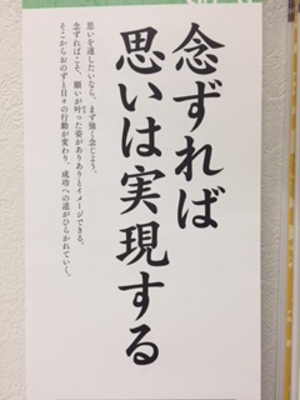 念ずれば
思いは実現する
思いを達したいなら、まず強く念じよう。
念ずればこそ、願いが叶った姿がありありとイメージできる。
そこからおのずと日々の行動が変わり、成功への道がひらかれていく。